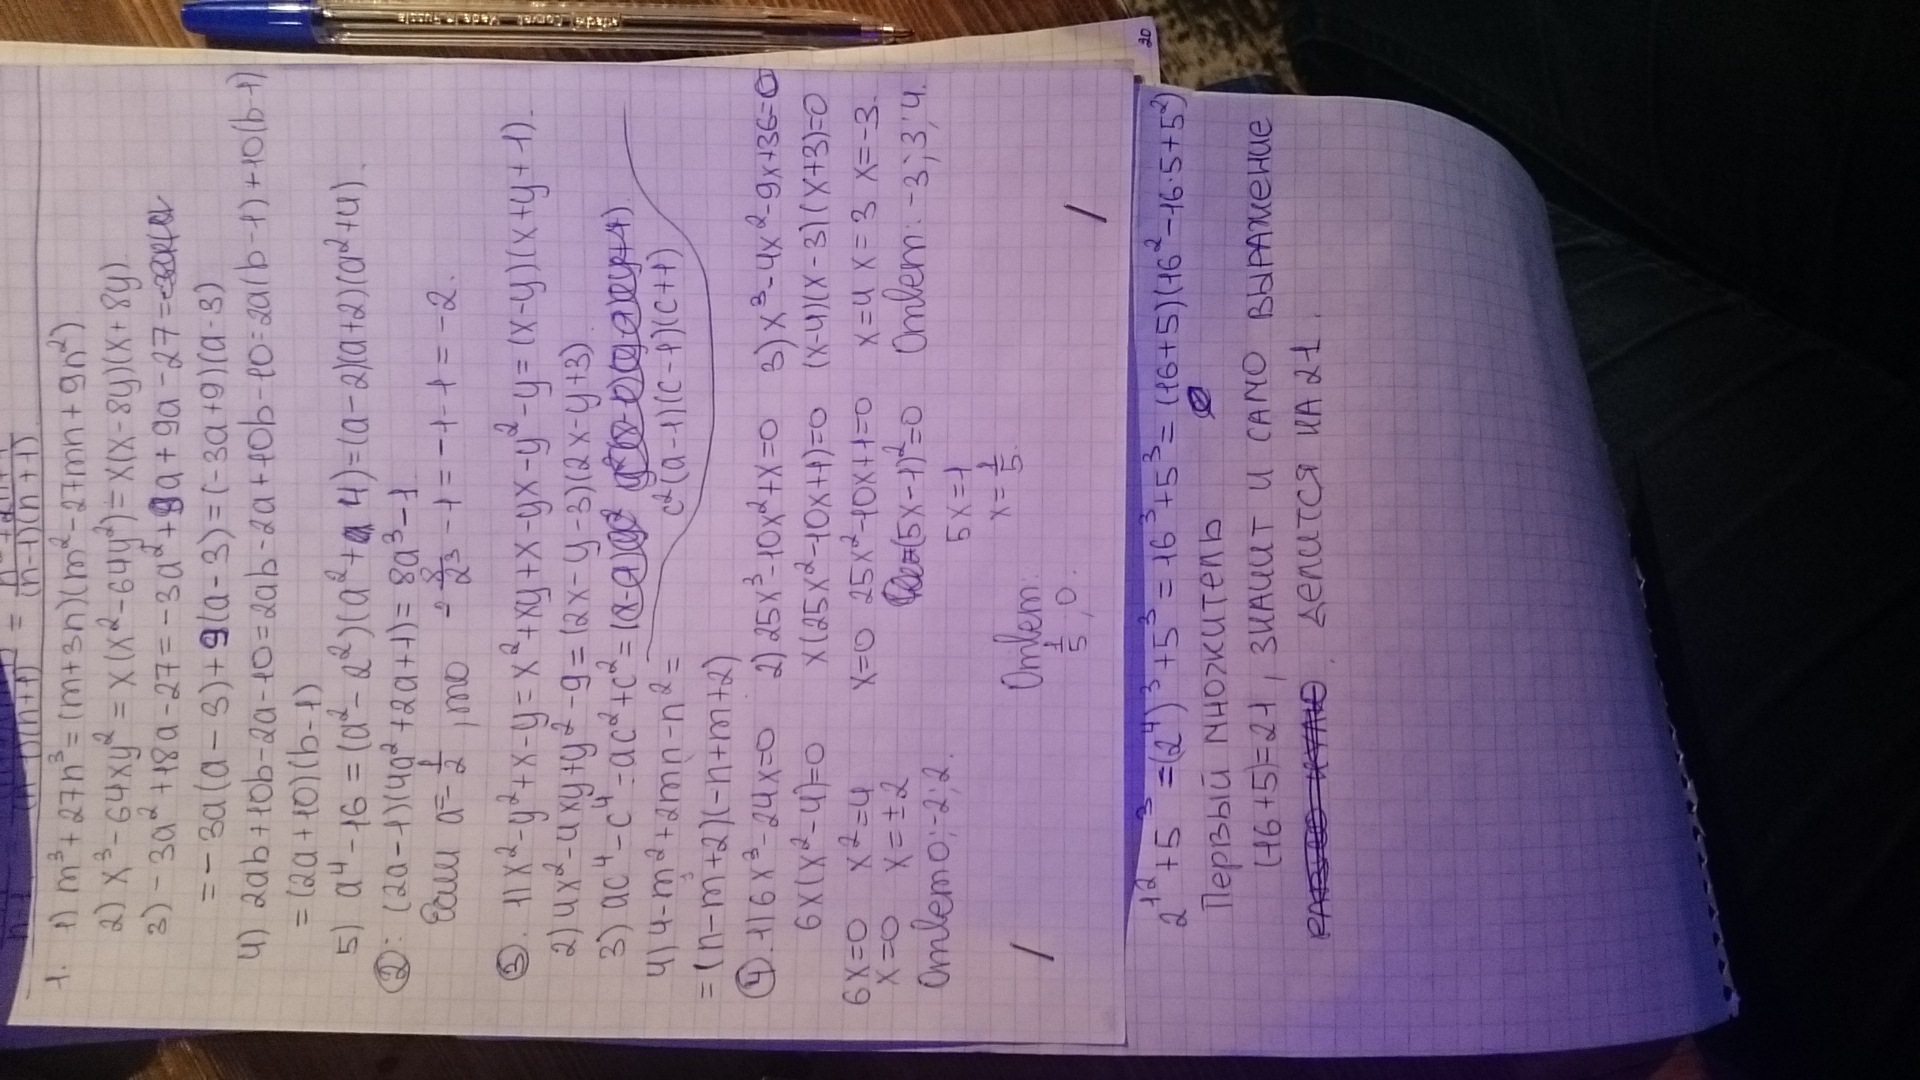 (n-1)(n+1)
1. 1) m³+27n³=(m+3n)(m²-27mn+9n²)
2) x³-64xy²=x(x²-64y²)=x(x-8y)(x+8y)
3) -3a²+18a-27=-3a²+9a+9a-27=
=-3a(a-3)+9(a-3)=(-3a+9)(a-3)
4) 2ab+10b-2a-10=2ab-2a+10b-10=2a(b-1)+10(b-1)
=(2a+10)(b-1)
5) a⁴-16=(a²-2²)(a²+4)=(a-2)(a+2)(a²+4).
②: (2a-1)(4a²+2a+1)=8a³-1
Если a=-1/2, то -8/2³-1=-1-1=-2.
③. 1) x²-y²+x-y=x²+xy+x-yx-y²-y=(x-y)(x+y+1).
2) 4x²-4xy+y²-9=(2x-y-3)(2x-y+3)
3) ac⁴-c⁴-ac²+c²=
c²(a-1)(c-1)(c+1)
4) 4-m²+2mn-n²=
=(n-m+2)(-n+m+2)
④. 1) 6x³-24x=0 2) 25x³-10x²+x=0 3) x³-4x²-9x+36=0
6x(x²-4)=0 x(25x²-10x+1)=0 (x-4)(x-3)(x+3)=0
6x=0 x²=4 x=0 25x²-10x+1=0 x=4 x=3 x=-3.
x=0 x=±2 (5x-1)²=0 Ответ: -3; 3; 4.
Ответ 0; -2; 2. 5x=1
x=1/5.
Ответ:
1/5, 0.
20
2¹²+5³=(2⁴)³+5³=16³+5³=(16+5)(16²-16·5+5²)
Первый множитель
(16+5)=21, значит и само выражение
делится на 21.